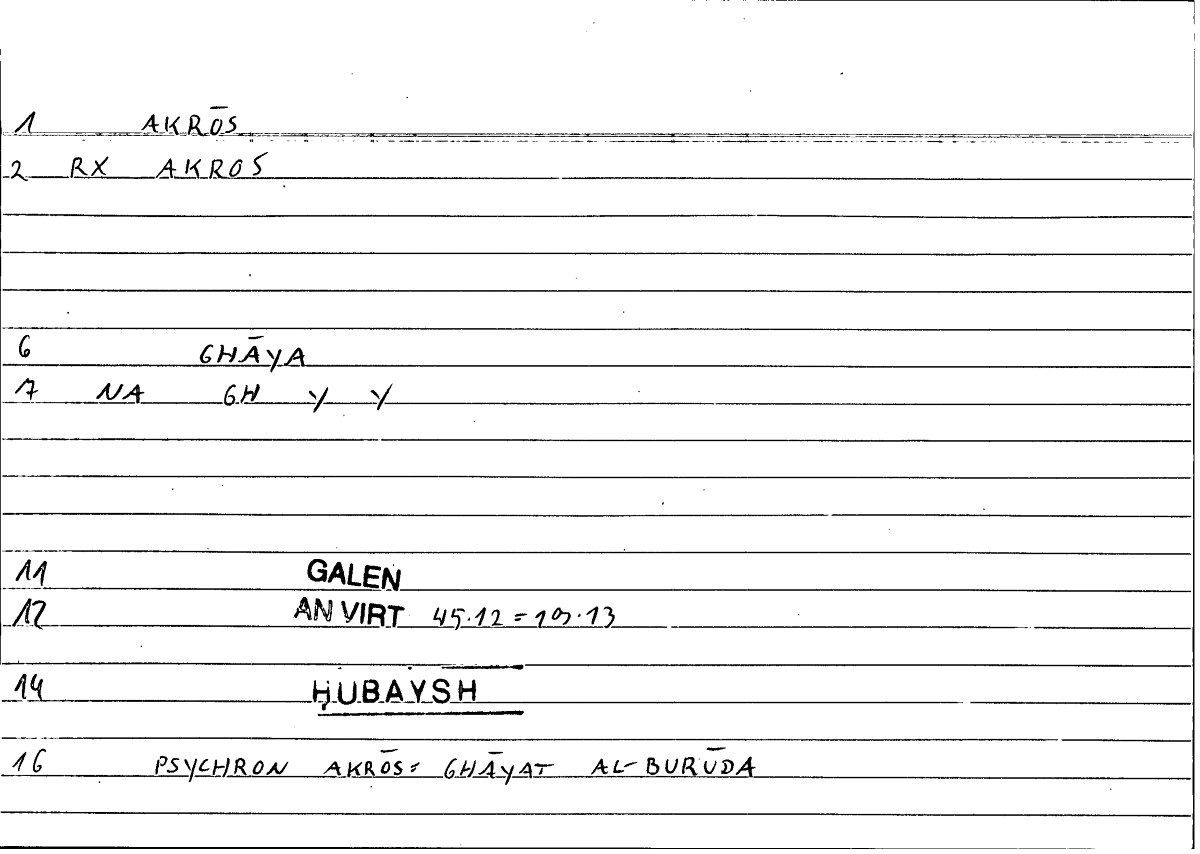 1 AKRŌS
2 RX AKROS
6 GHĀYA
7 NA GH Y Y
11 GALEN
12 AN VIRT 45.12 = 19.13
14 ḤUBAYSH
16 PSYCHRON AKRŌS = GHĀYAT AL-BURŪDA